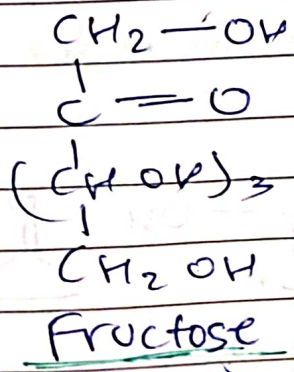 CH2 — OH
C = O
(CHOH)3
CH2 OH
Fructose